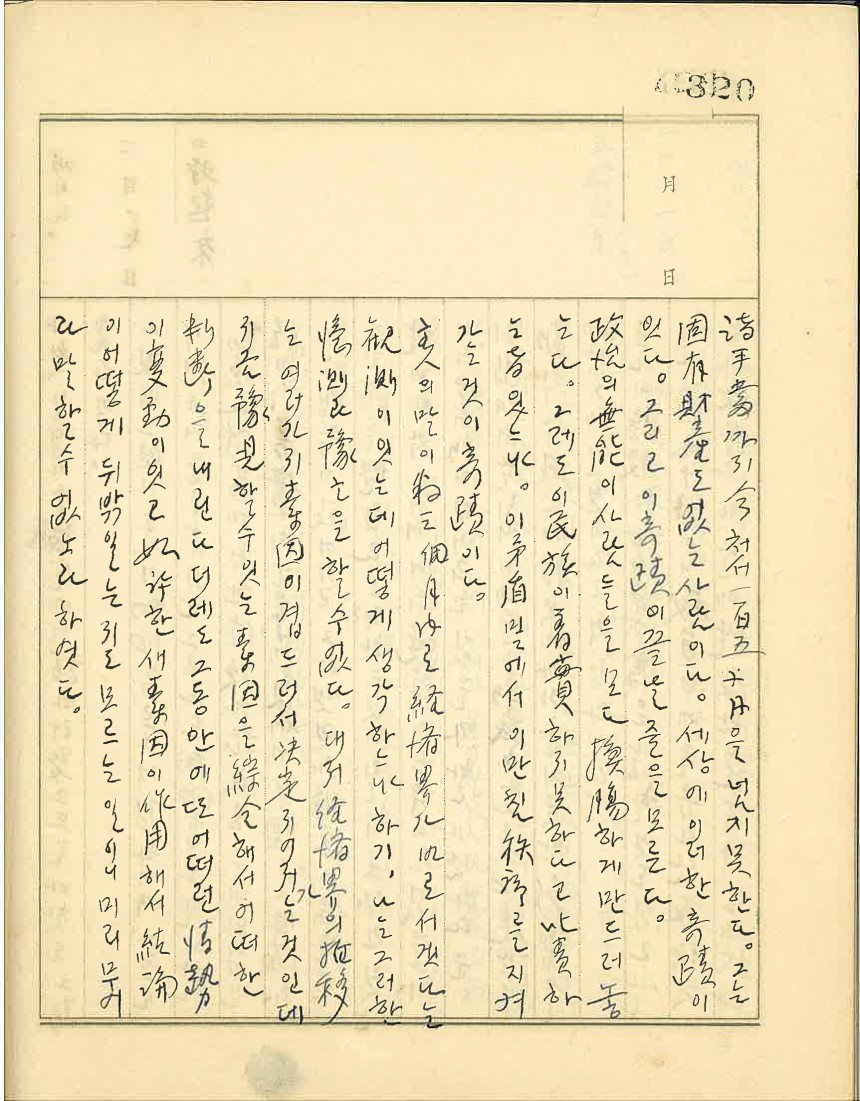 320
月
日
諸手當까지 合처서 一百五十弗을 넘지못한다. 그는
固有財産도 없는 사람이다. 세상에 이러한 奇蹟이
잇다. 그리고 이 奇蹟이 끝날 줄을 모른다.
政治의 無能이 사람들을 모다 換腸하게 만드러 놓
는다. 그레도 이 民族이 하지못하다고 하
는 者 잇느냐. 이 矛盾 밑에서 이만친 秩序를 지켜
가는 것이 奇蹟이다.
의 말이 約三個月內로 経済界가 바로 서겟다는
観測이 잇는데 어떻게 생각하느냐 하기, 나는 그러한
憶測과 豫言을 할 수 없다. 대저 経済界의 推移
는 여러가지 素因이 겹드러서 決定지여저가는 것인데
지금 豫見할 수 잇는 素因을 綜合해서 어떠한
判斷을 내린다 더레도 그동안에 또 어떠런 情勢
이 変動이 잇고 如許한 새 素因이 作用해서 結論
이 어떻게 뒤밖일는지도 모르는 일이니 미리 무어
라 말할 수 없노라 하엿다.